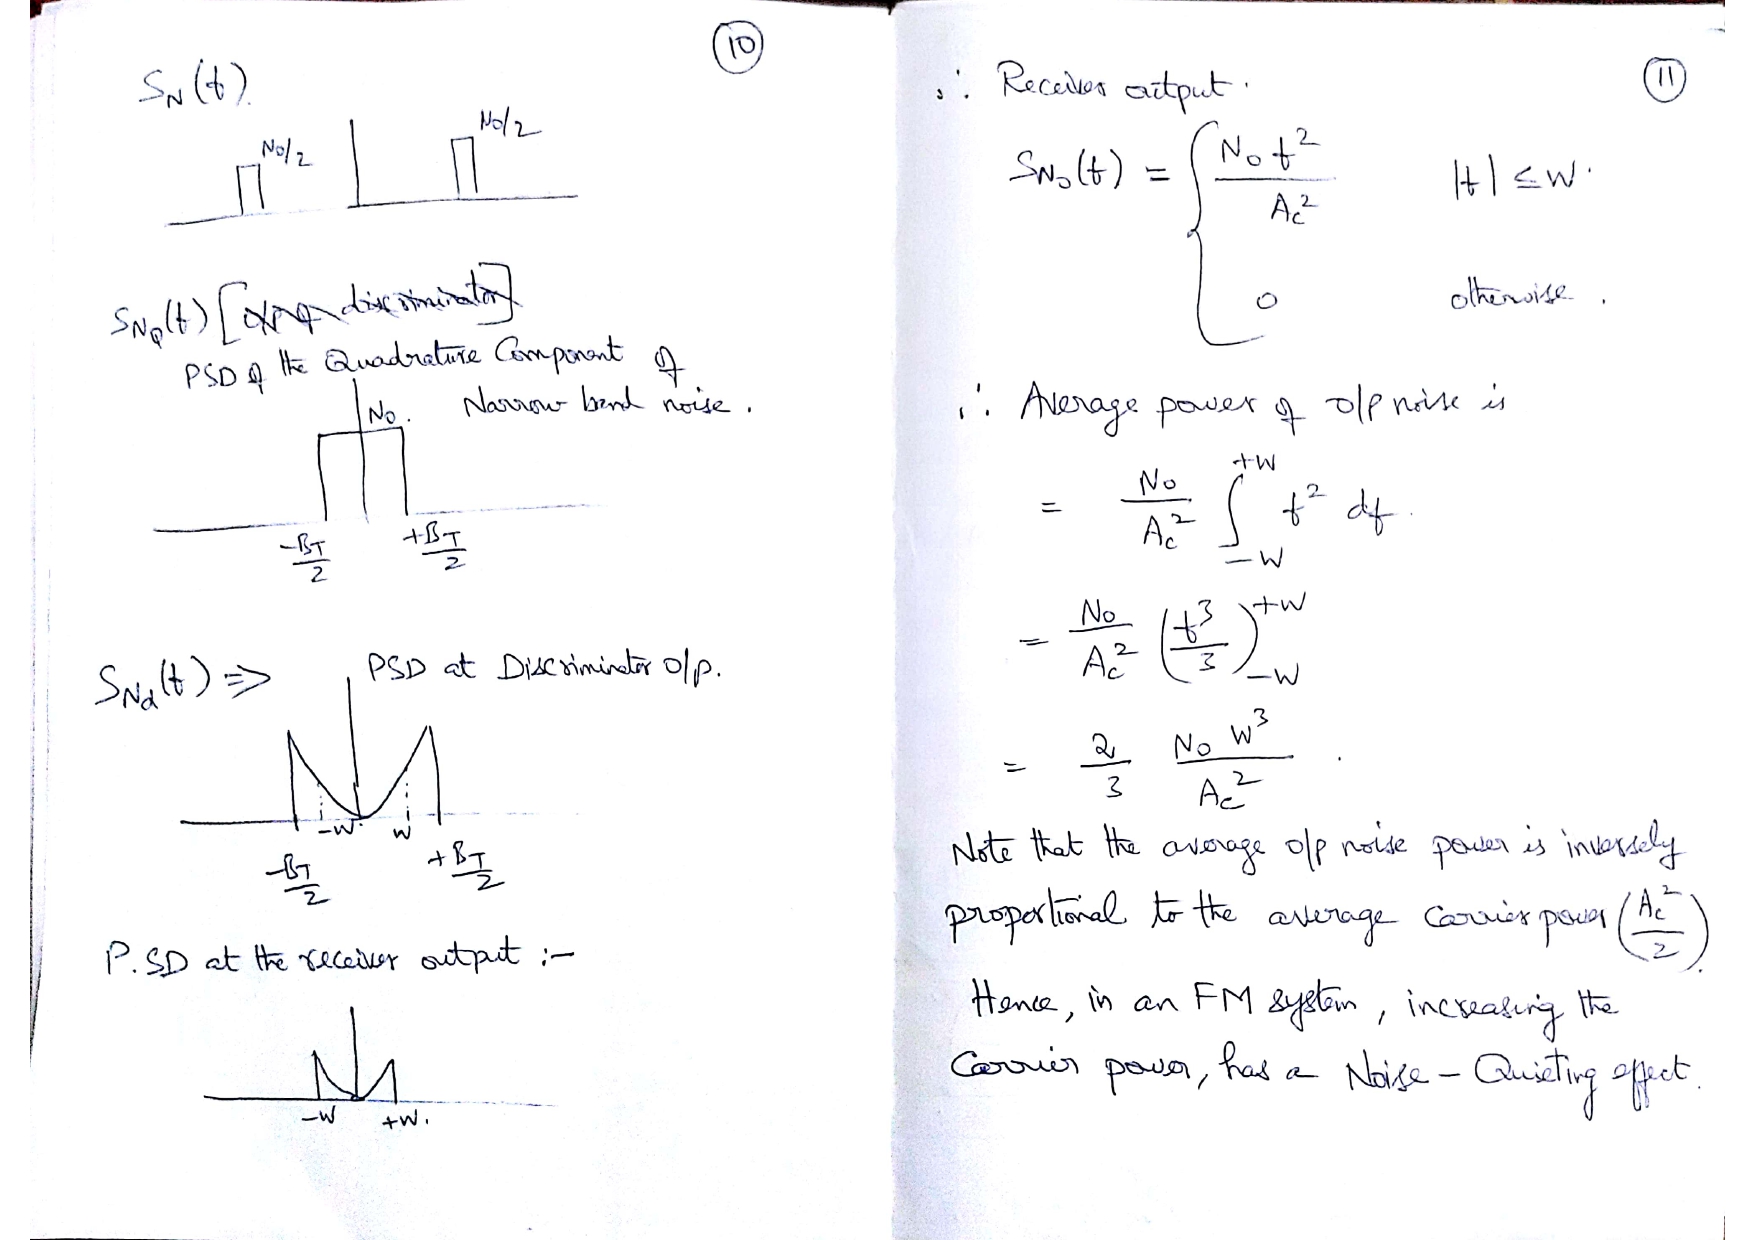 10
S_N(f)
N0/2
N0/2
S_NQ(f)
PSD of the Quadrature Component of
Narrow band noise.
N0.
-B_T/2 +B_T/2
S_Nd(f) => PSD at Discriminator o/p.
-W W
-B_T/2 +B_T/2
P.SD at the receiver output :-
-W +W.
11
∴ Receiver output.
S_N0(f) = { N0 f^2 / Ac^2 |f| ≤ W.
0 otherwise.
∴ Average power of o/p noise is
= N0/Ac^2 ∫_{-W}^{+W} f^2 df.
= N0/Ac^2 (f^3/3)_{-W}^{+W}
= 2/3 N0 W^3/Ac^2.
Note that the average o/p noise power is inversely
proportional to the average Carrier power (Ac^2/2).
Hence, in an FM system, increasing the
Carrier power, has a Noise-Quieting effect.